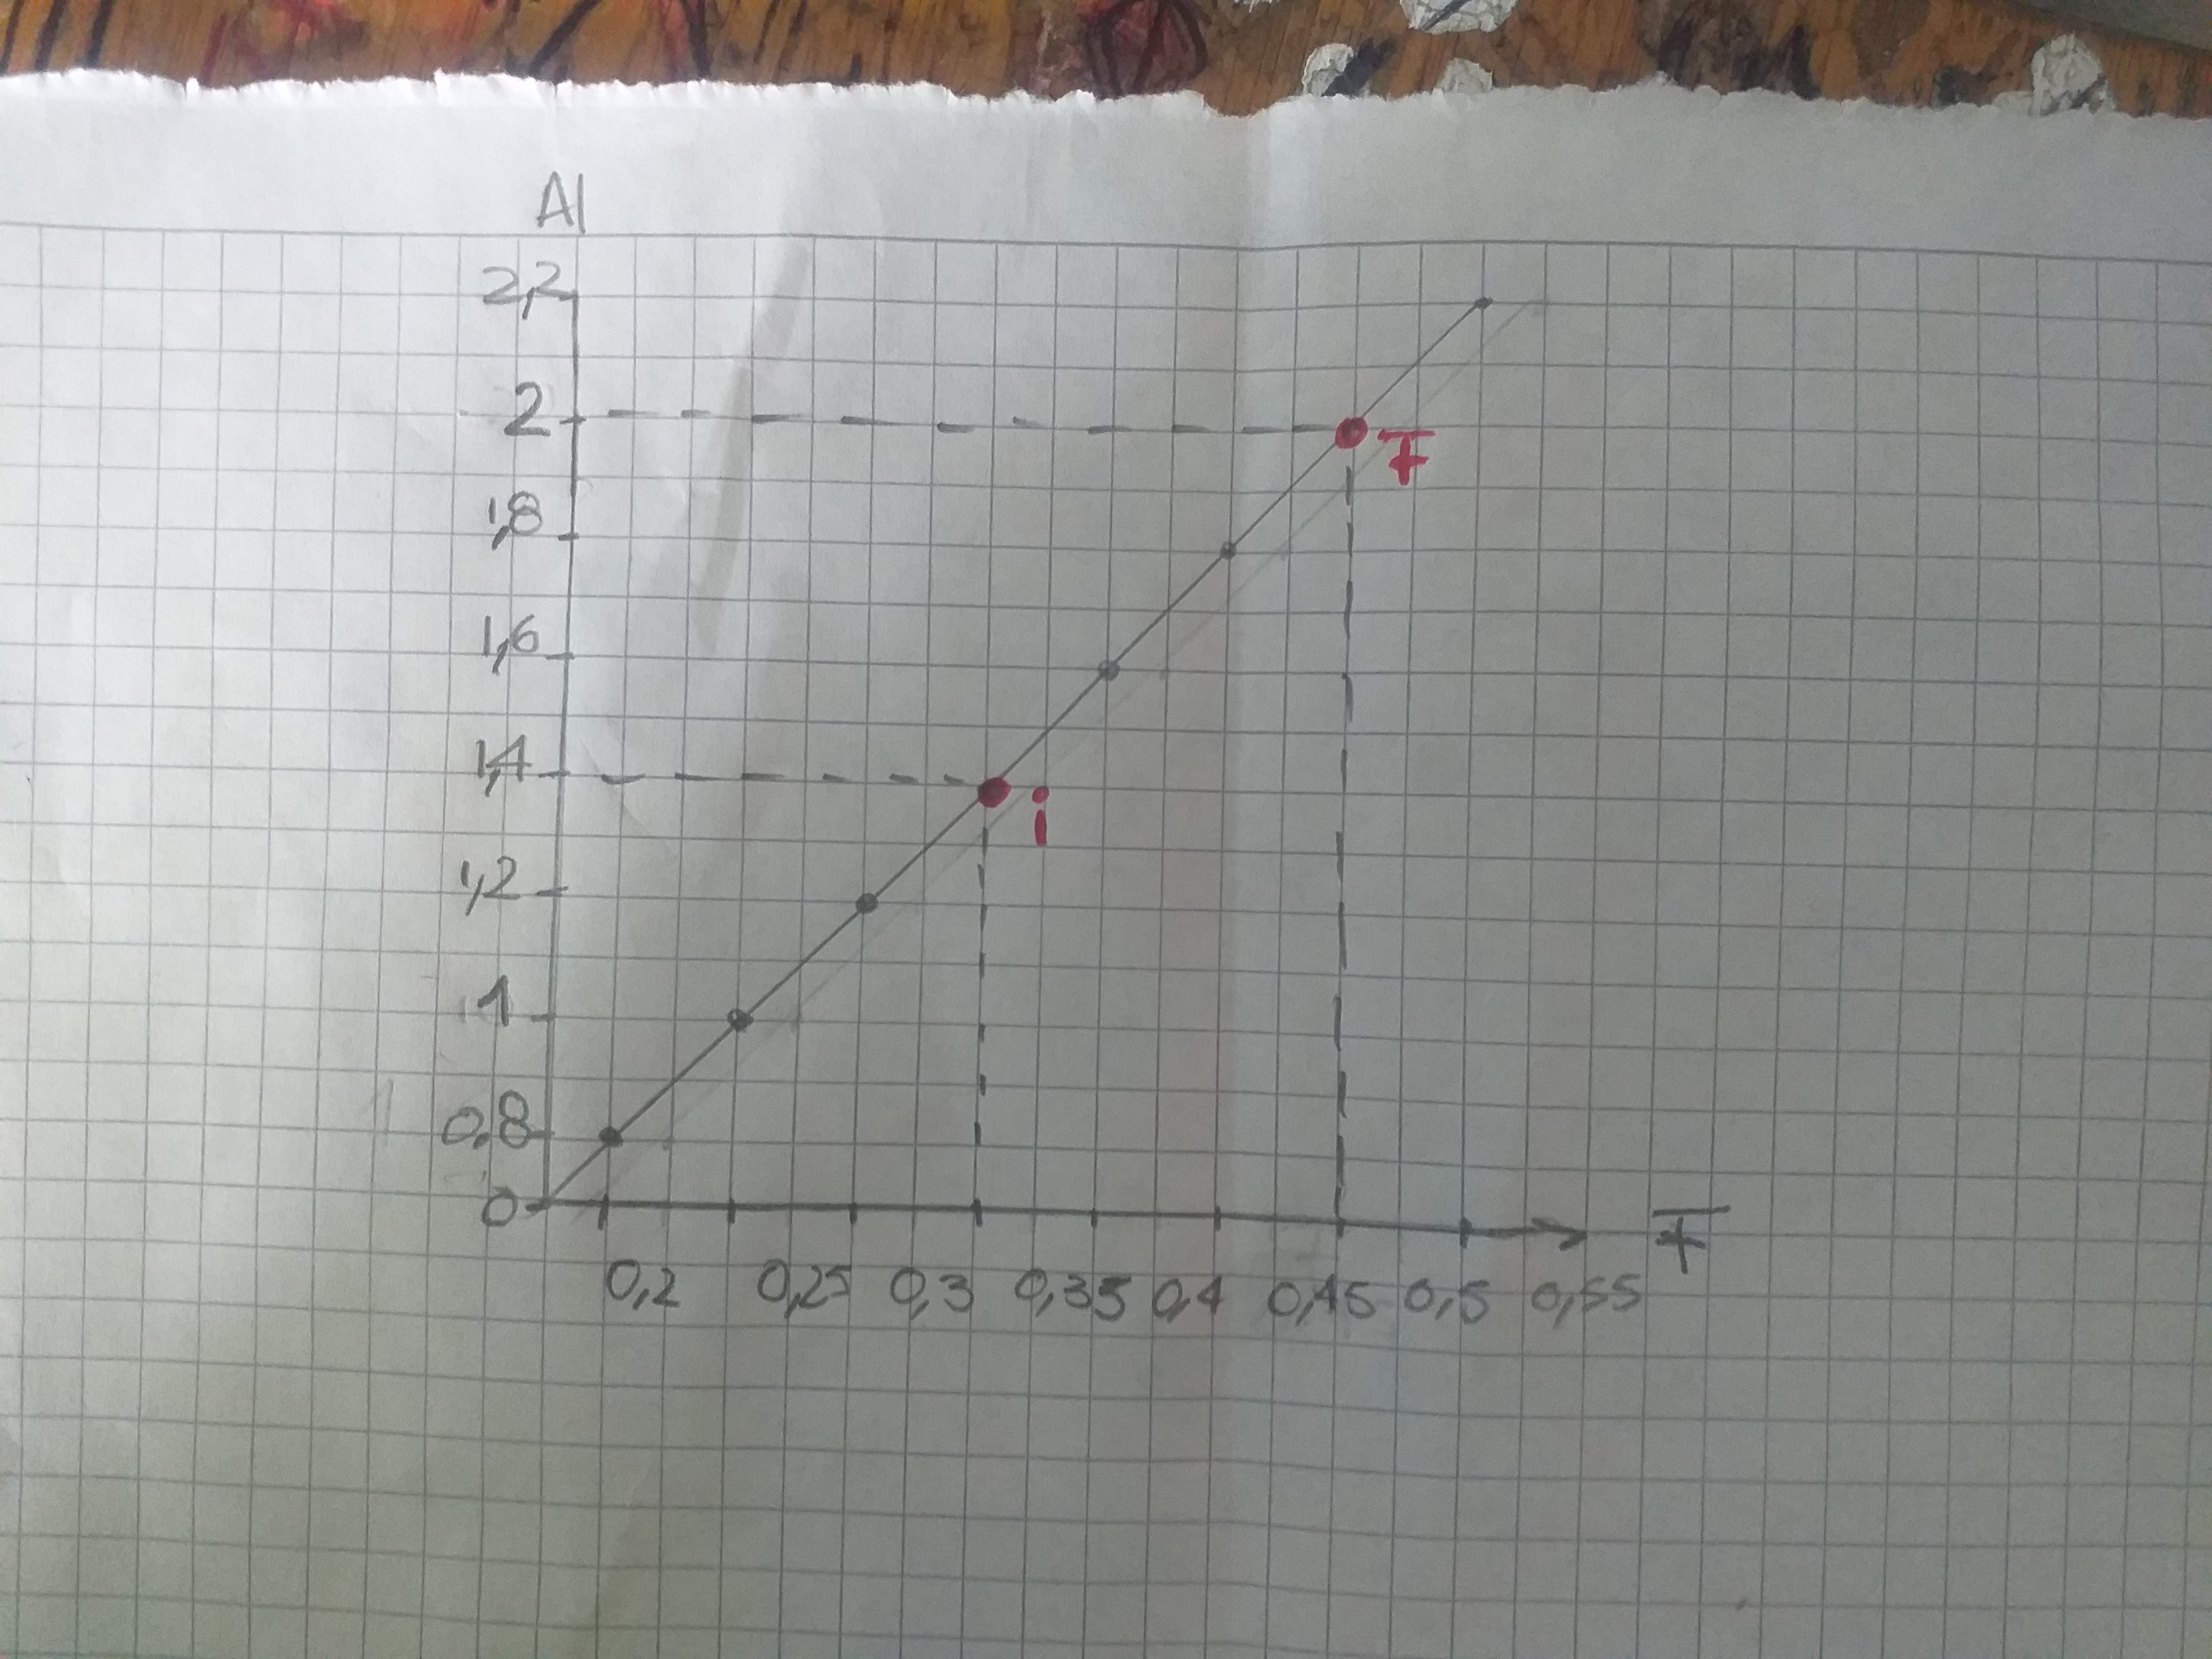 Al
2,2
2
F
1,8
1,6
1,4
i
1,2
1
0,8
0
0,2 0,25 0,3 0,35 0,4 0,45 0,5 0,55 F